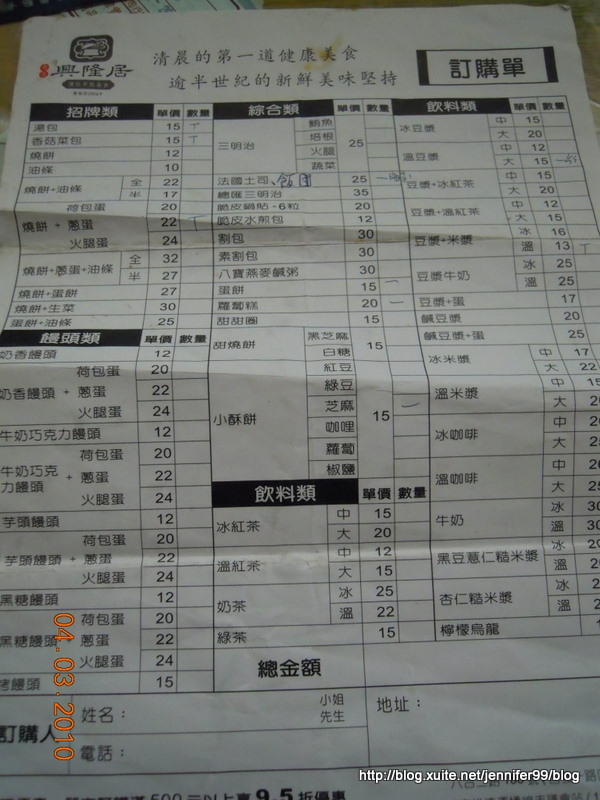 興隆居
清晨的第一道健康美食
逾半世紀的新鮮美味堅持
訂購單
招牌類 單價 數量
湯包 15
香菇菜包 15
燒餅 12
油條 10
燒餅+油條 全 22
半 17
燒餅 + 荷包蛋 20
蔥蛋 22
火腿蛋 24
燒餅+蔥蛋+油條 全 32
半 27
燒餅+蛋餅 27
燒餅+生菜 30
蛋餅+油條 25
饅頭類 單價 數量
奶香饅頭 12
奶香饅頭 + 荷包蛋 20
蔥蛋 22
火腿蛋 24
牛奶巧克力饅頭 12
牛奶巧克力饅頭 + 荷包蛋 20
蔥蛋 22
火腿蛋 24
芋頭饅頭 12
芋頭饅頭 + 荷包蛋 20
蔥蛋 22
火腿蛋 24
黑糖饅頭 12
黑糖饅頭 + 荷包蛋 20
蔥蛋 22
火腿蛋 24
烤饅頭 15
綜合類 單價 數量
三明治 鮪魚 25
培根
火腿
蔬菜
法國土司 飯糰 25
總匯三明治 35
脆皮鍋貼-6粒 20
脆皮水煎包 12
割包 30
素割包 30
八寶燕麥鹹粥 30
蛋餅 15
蘿蔔糕 20
甜甜圈 15
甜燒餅 黑芝麻 15
白糖
紅豆
小酥餅 綠豆 15
芝麻
咖哩
蘿蔔
椒鹽
飲料類 單價 數量
冰紅茶 中 15
大 20
溫紅茶 中 12
大 15
奶茶 冰 25
溫 22
綠茶 15
飲料類 單價 數量
冰豆漿 中 15
大 20
溫豆漿 中 12
大 15
豆漿+冰紅茶 中 15
大 20
豆漿+溫紅茶 中 12
大 15
豆漿+米漿 冰 16
溫 13
豆漿牛奶 冰 25
溫 25
豆漿+蛋 17
鹹豆漿 20
鹹豆漿+蛋 25
冰米漿 中 17
大 22
溫米漿 中 15
大
冰咖啡 中
大
溫咖啡 中
大
牛奶 冰
溫
黑豆薏仁糙米漿 冰
溫
杏仁糙米漿 冰
溫
檸檬烏龍
總金額
訂購人
姓名： 小姐
先生
電話：
地址：
500元以上享9.5折優惠
04.03.2010
http://blog.xuite.net/jennifer99/blog